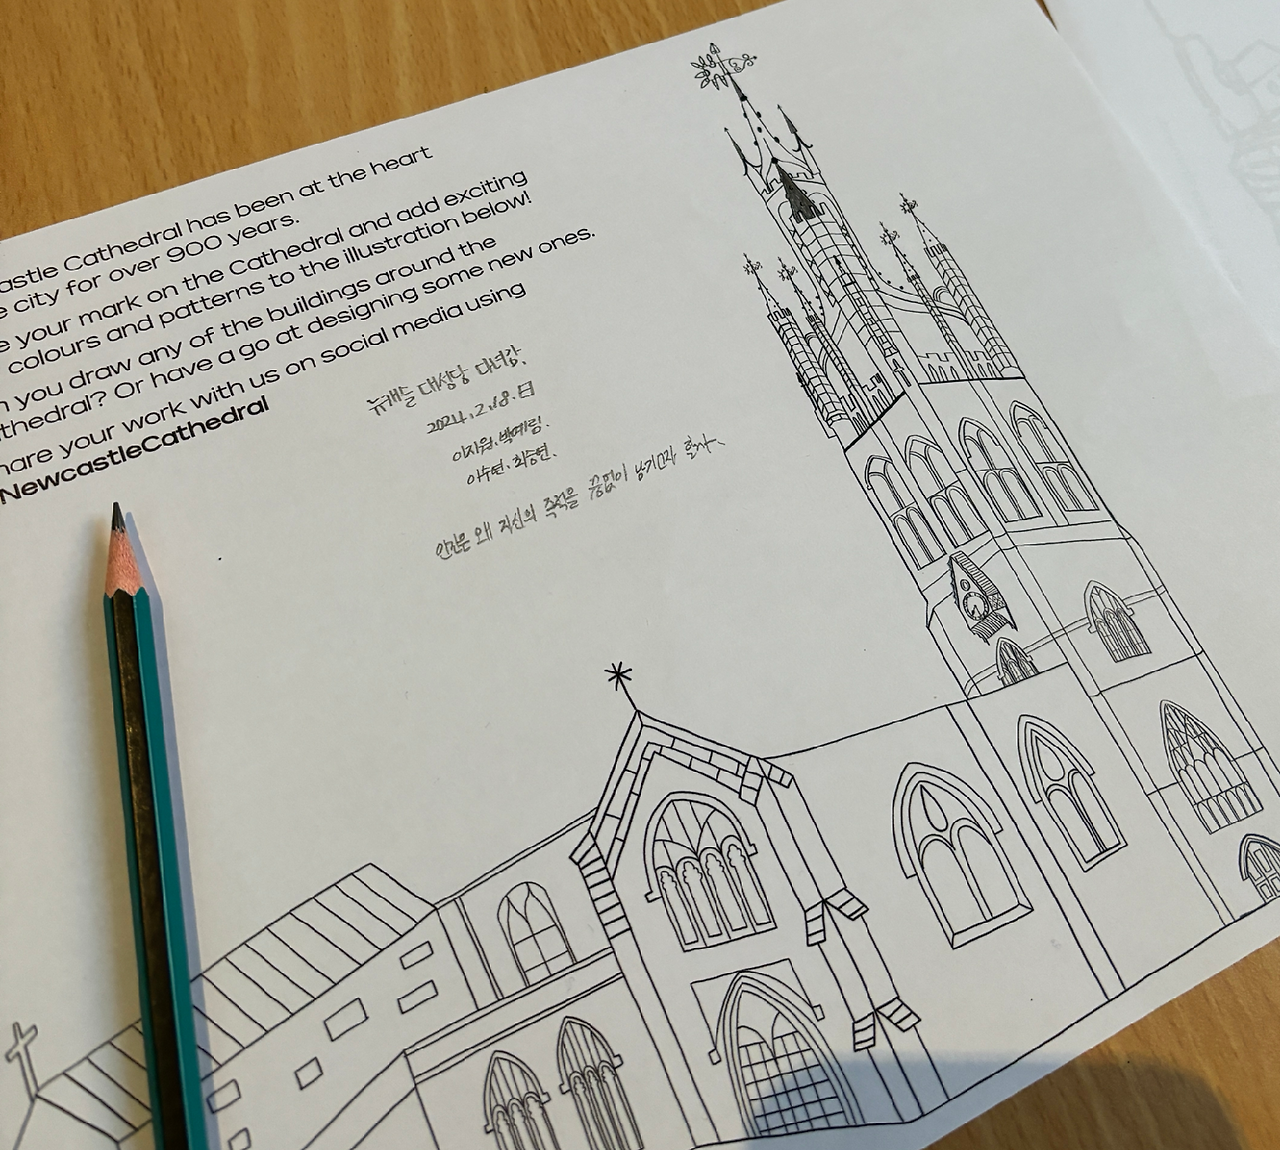 astle Cathedral has been at the heart
e city for over 900 years.
e your mark on the Cathedral and add exciting
colours and patterns to the illustration below!
n you draw any of the buildings around the
thedral? Or have a go at designing some new ones.
hare your work with us on social media using
NewcastleCathedral
뉴캐슬 대성당 다녀감.
2024.2.18.日
이지원.박예림.
이수현.최승연.
인간은 왜 자신의 흔적을 끊임없이 남기고자 할까.